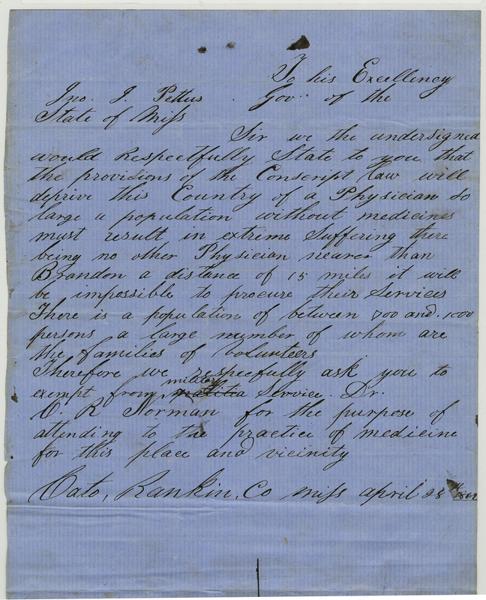 To his Excellency
Jno. J. Pettus . Gov:: of the
State of Miss
Sir we the undersigned
would Respectfully State to you that
the provisions of the Conscript Law will
deprive this Country of a Physician so
large a population without medicines
must result in extreme Suffering there
being no other Physician nearer than
Brandon a distance of 15 miles it will
be impossible to procure their Services
There is a population of between 700 and 1000
persons a large number of whom are
the families of volunteers
Therefore we respecfully ask you to
military
exempt from Service Dr.
O. R. Torman for the purpose of
attending to the practice of medicine
for this place and vicinity
Cato, Rankin, Co miss april 28